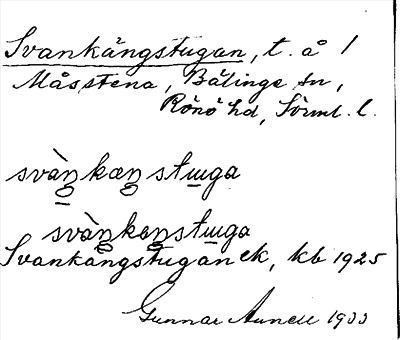 Svankängstugan, t. å 1
Måsstena, Bälinge sn,
Rönö hd, Sörml. l.
svàŋkæŋstɯga
svàŋkæŋstɯga
Svankängstugan ek, kb 1925
Gunnar Aunell 1933